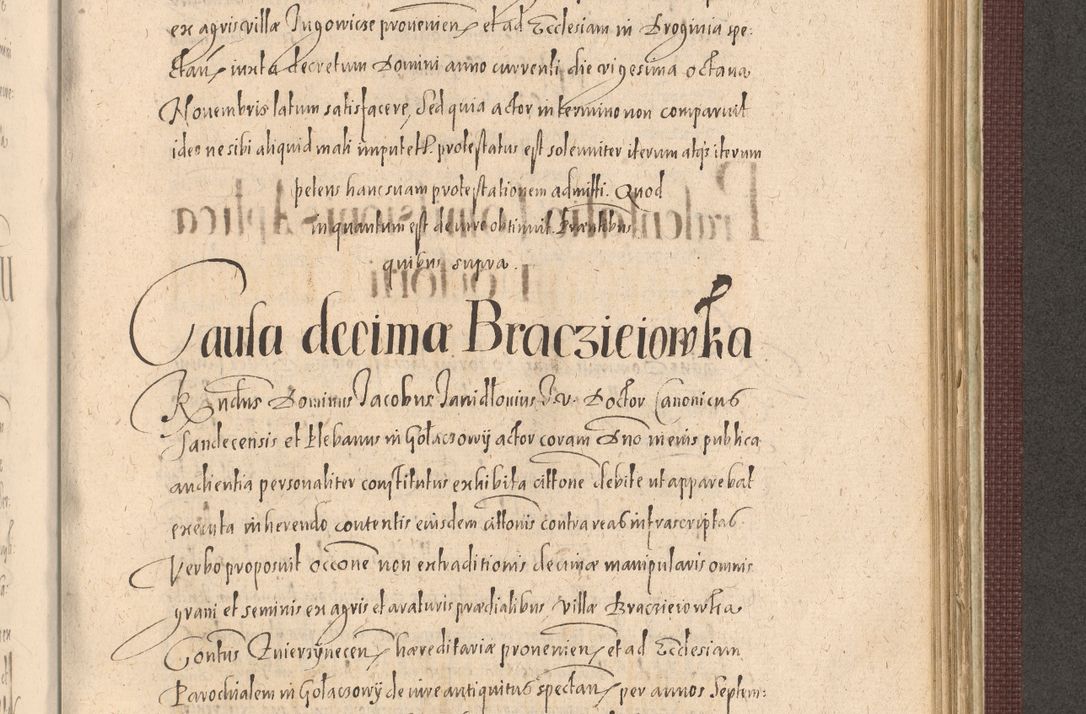 ex agris villæ Jugowicze provenien et ad Ecclesiam in Broginia spe:
ctan iuxta decretum Domini anno currenti die vigesima octava
Novembris latum satisfacere, Sed quia actor in termino non comparuit
ideo ne sibi aliquid mali imputetr. protestatus est solemniter iterum atqs iterum
petens hanc suam protestationem admitti. Quod
in quantum est de iure obtinuit. Præntibus
quibus supra.
Causa decima Braczieiowska
Rndus Dominus Jacobus Janidlovius J. V. Doctor Canonicus
Sandecensis et Plebanus in Gołaczowÿ actor coram Dno in eius publica
audientia personaliter constitutus exhibita citatione debite ut apparebat
executa inherendo contentis eiusdem citationis contra reas infrascriptas
Verbo proposuit occone non extraditionis decimæ manipularis omnis
grani et seminis ex agris et araturis prædialibus villæ Braczieiowska
Contus Zwierzÿnecen hæreditariæ provenien et ad Ecclesiam
Parochialem in Gołaczowÿ de iure antiquitus spectan per annos Septem: